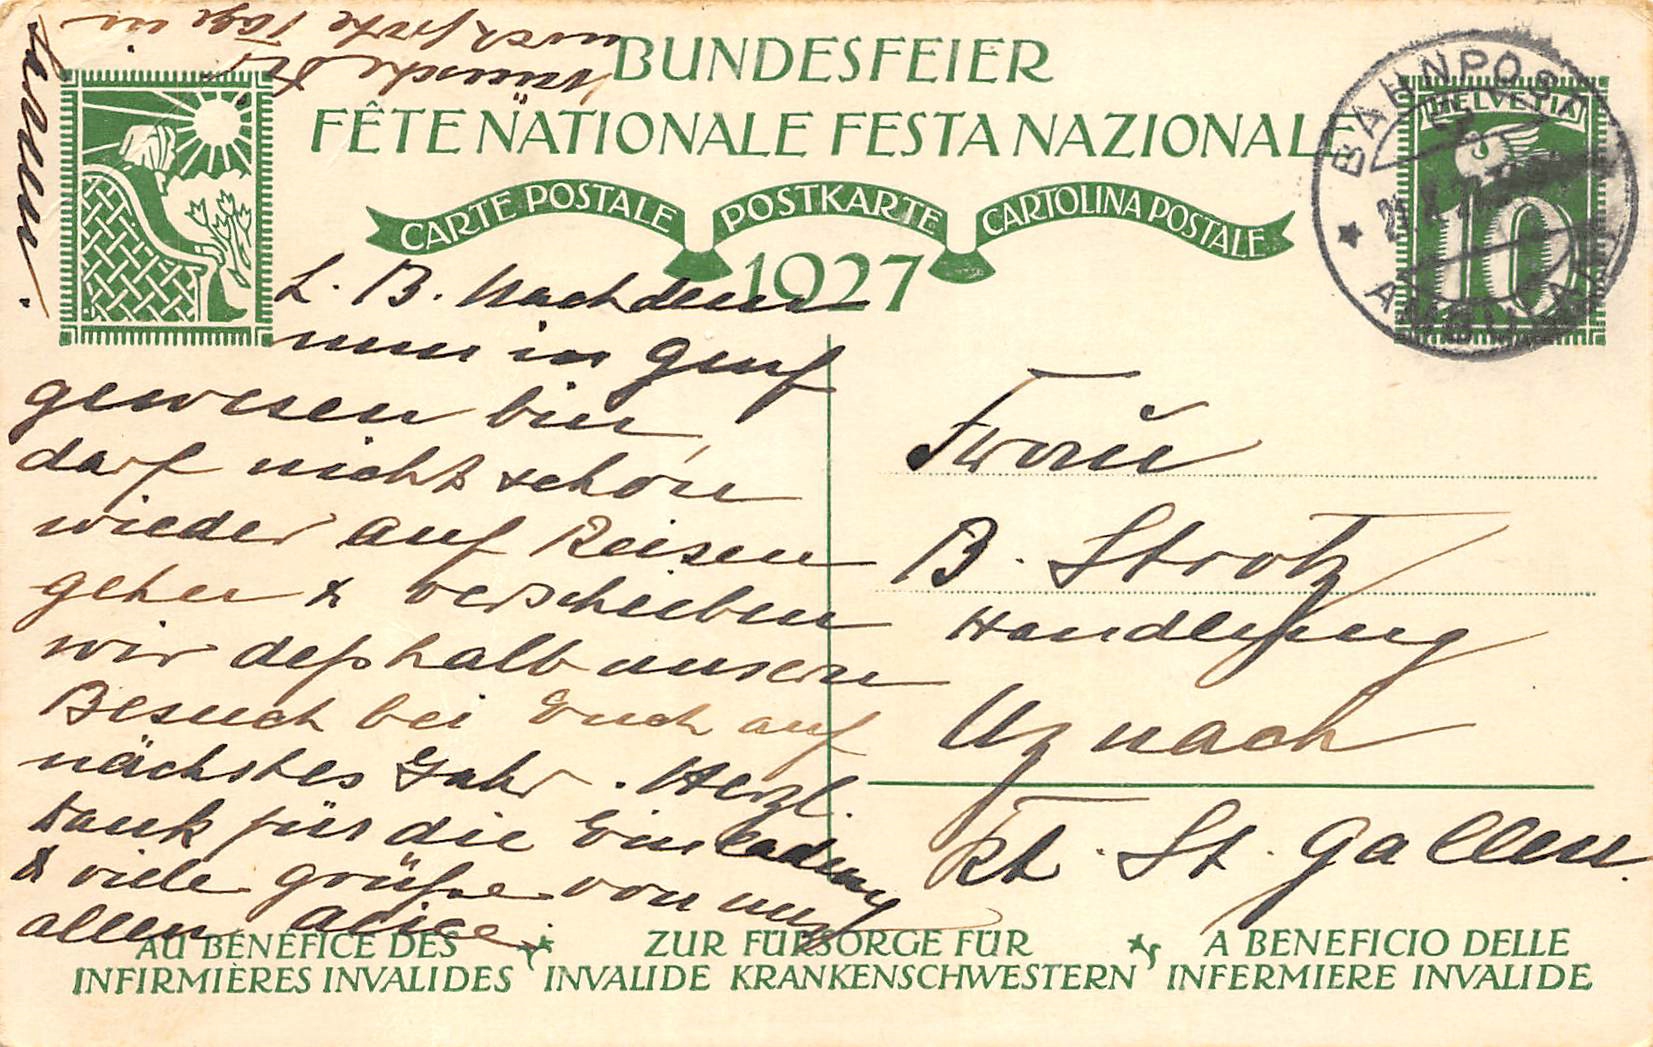 BUNDESFEIER
FÊTE NATIONALE FESTA NAZIONALE
CARTE POSTALE POSTKARTE CARTOLINA POSTALE
1927
BAHNPOST
AMBULANT
HELVETIA
10
L. B. Nachdem
nun in Genf
gewesen bin,
darf nicht schon
wieder auf Reisen
gehen & verschieben
wir deßhalb unsern
Besuch bei Euch auf
nächstes Jahr. Herzl.
Dank für die Einladung
& viele Grüße von uns
allen Alice.
Wünsche Dir
noch frohe Tage in
Frau
B. Strotz
Handlung
Uznach
Kt. St. Gallen.
AU BÉNÉFICE DES INFIRMIÈRES INVALIDES
ZUR FÜRSORGE FÜR INVALIDE KRANKENSCHWESTERN
A BENEFICIO DELLE INFERMIERE INVALIDE